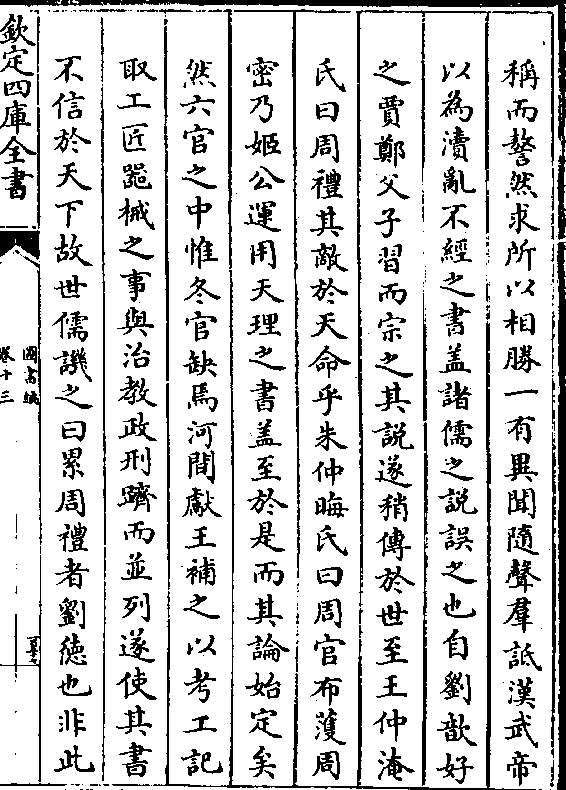 稱而謷然求所以相勝一有異聞隨聲羣詆漢武帝
以為瀆亂不經之書蓋諸儒之説誤之也自劉歆好
之賈鄭父子習而宗之其説遂稍傳於世至王仲淹
氏曰周禮其敵於天命乎朱仲晦氏曰周官布濩周
密乃姬公運用天理之書蓋至於是而其論始定矣
然六官之中惟冬官缺焉河間獻王補之以考工記
取工匠噐械之事與治教政刑躋而並列遂使其書
不信於天下故世儒譏之曰累周禮者劉徳也非此
欽定四庫全書
圖書編
卷十三